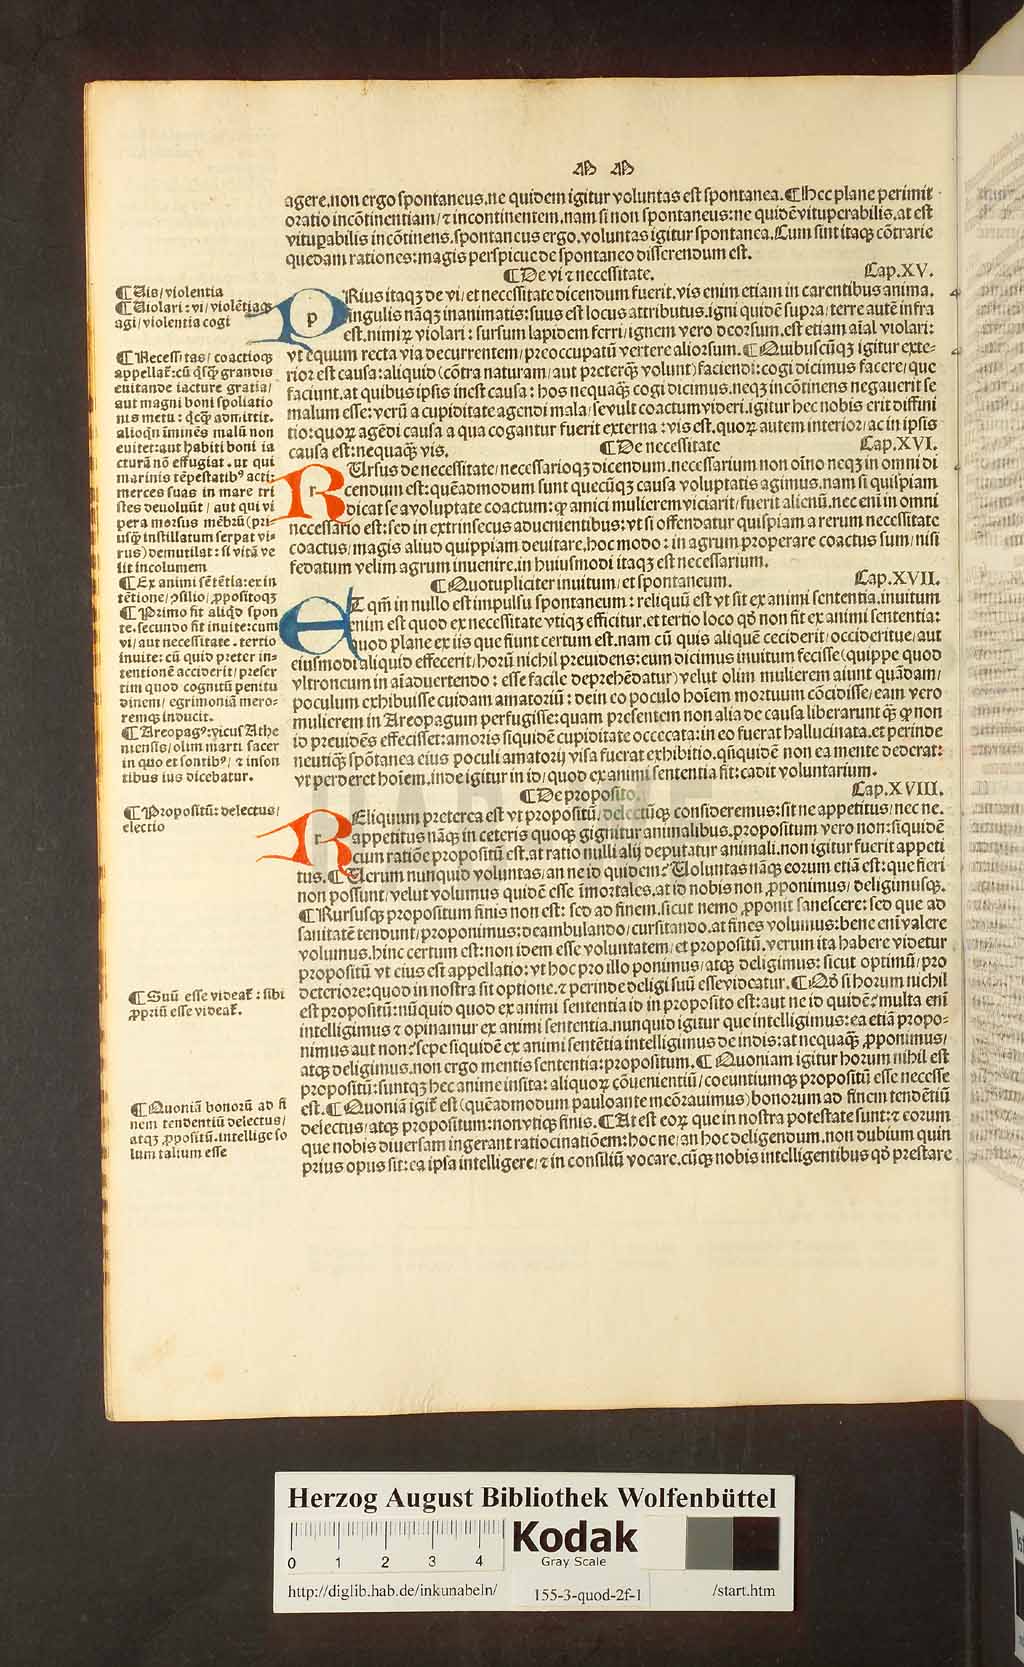 M M
agere.non ergo spontaneus.ne quidem igitur voluntas est spontanea.¶Hec plane perimit
oratio incõtinentiam/⁊ incontinentem.nam si non spontaneus:ne quidẽ vituperabilis.at est
vituꝑabilis incõtinens.spontaneus ergo.voluntas igitur spontanea.Cum sint itaqꝫ cõtrarie
quedam rationes:magis perspicue de spontaneo disserendum est.
¶De vi ⁊ necessitate. Cap.XV.
PRius itaqꝫ de vi/et necessitate dicendum fuerit.vis enim etiam in carentibus anima.
singulis nãqꝫ inanimatis:suus est locus attributus.igni quidẽ supra/terre autẽ infra
est.nimiꝝ violari : sursum lapidem ferri/ignem vero deorsum.est etiam aĩal violari:
vt equum recta via decurrentem/preoccupatũ vertere aliorsum.¶Quibuscũqꝫ igitur exte-
rior est causa:aliquid(cõtra naturam/aut preterqꝫ̃ volunt)faciendi:cogi dicimus facere/que
faciunt.at quibus ipsis inest causa : hos nequaqꝫ̃ cogi dicimus.neqꝫ incõtinens negauerit se
malum esse:verũ a cupiditate agendi mala/se vult coactum videri.igitur hec nobis erit diffini
tio:quoꝝ agẽdi causa a qua cogantur fuerit externa : vis est.quoꝝ autem interior/ac in ipsis
causa est:nequaqꝫ̃ vis. ¶De necessitate Cap.XVI.
RUrsus de necessitate/necessarioqꝫ dicendum.necessarium non oĩno neqꝫ in omni di
cendum est:quẽadmodum sunt quecũqꝫ causa voluptatis agimus.nam si quispiam
dicat se a voluptate coactum:ꝙ amici mulierem viciarit/fuerit alienũ.nec enĩ in omni
necessario est:sed in extrinsecus aduenientibus:vt si offendatur quispiam a rerum necessitate
coactus/magis aliud quippiam deuitare.hoc modo : in agrum properare coactus sum/nisi
fedatum velim agrum inuenire.in huiusmodi itaqꝫ est necessarium.
¶Quotupliciter inuitum/et spontaneum. Cap.XVII.
ET qm̃ in nullo est impulsu spontaneum : reliquũ est vt sit ex animi sententia.inuitum
enim est quod ex necessitate vtiqꝫ efficitur.et tertio loco qđ non fit ex animi sententia:
quod plane ex iis que fiunt certum est.nam cũ quis aliquẽ ceciderit/occideritue/aut
eiusmodi aliquid effecerit/horũ nichil preuidens:eum dicimus inuitum fecisse(quippe quod
vltroncum in aĩaduertendo : esse facile deprehẽdatur)velut olim mulierem aiunt quãdam/
poculum exhibuisse cuidam amatoriũ : dein eo poculo hoĩem mortuum cõcidisse/eam vero
mulierem in Areopagum perfugisse:quam presentem non alia de causa liberarunt qꝫ̃ ꝙ non
id preuidẽs effecisset:amoris siquidẽ cupiditate occecata:in eo fuerat hallucinata.et perinde
neutiqꝫ̃ spõtanea eius poculi amatorij visa fuerat exhibitio.qñquidẽ non ea mente dederat:
vt perderet hoĩem.inde igitur in id/quod ex animi sententia fit:cadit voluntarium.
¶De proposito. Cap.XVIII.
RELiquum preterea est vt propositũ/delectũqꝫ consideremus:sit ne appetitus/nec ne.
appetitus nãqꝫ in ceteris quoqꝫ gignitur animalibus.propositum vero non:siquidẽ
cum ratiõe propositũ est.at ratio nulli alij deputatur animali.non igitur fuerit appeti
tus.¶Uerum nunquid voluntas/an ne id quidem:Uoluntas nãqꝫ eorum etiã est:que fieri
non possunt/velut volumus quidẽ esse ĩmortales.at id nobis non ꝓponimus/deligimusqꝫ.
¶Rursusqꝫ propositum finis non est: sed ad finem.sicut nemo ꝓponit sanescere:sed que ad
sanitatẽ tendunt/proponimus:deambulando/cursitando.at fines volumus:bene enĩ valere
volumus.hinc certum est:non idem esse voluntatem/et propositũ.verum ita habere videtur
propositũ vt eius est appellatio:vt hoc pro illo ponimus/atqꝫ deligimus: sicut optimũ/pro
deteriore:quod in nostra sit optione.⁊ perinde deligi suũ esse videatur.¶Qđ si horum nichil
est propositũ:nũquid quod ex animi sententia id in proposito est:aut ne id quidẽ:multa enĩ
intelligimus ⁊ opinamur ex animi sententia.nunquid igitur que intelligimus:ea etiã propo-
nimus aut non:sepe siquidẽ ex animi sentẽtia intelligimus de indis:at nequaqꝫ̃ ꝓponimus/
atqꝫ deligimus.non ergo mentis sententia:propositum.¶Quoniam igitur horum nihil est
propositũ:suntqꝫ hec anime insita: aliquoꝝ cõuenientiũ/coeuntiumqꝫ propositũ esse necesse
est.¶Quoniã igit᷑ est(quẽadmodum paulo ante meõrauimus)bonorum ad finem tendẽtiũ
delectus/atqꝫ propositum:non vtiqꝫ finis.¶At est eoꝝ que in nostra potestate sunt:⁊ eorum
que nobis diuersam ingerant ratiocinatiõem:hoc ne/an hoc deligendum.non dubium quin
prius opus sit:ea ipsa intelligere/⁊ in consiliũ vocare.cũqꝫ nobis intelligentibus qđ prestare
¶Uis/violentia
¶Uiolari : vi/violẽtiaqꝫ
agi/violentia cogi
¶Necessitas/coactioqꝫ
appellat᷑:cũ qͥsqꝫ̃ grandis
euitande iacture gratia/
aut magni boni spoliatio
nis metu : qͥcqꝫ̃ admittit.
alioqͥn ĩminẽs malũ non
euitet:aut habiti boni ia
cturã nõ effugiat . ut qui
marinis tẽpestatibꝰ acti:
merces suas in mare tri
stes deuoluũt / aut qui vi
pera morsus mẽbrũ (pri-
usqꝫ̃ instillatum serpat vi-
rus)demutilat : si vitã ve
lit incolumem
¶Ex animi sẽtẽtia:ex in
tẽtione/ↄsilio/ꝓpositoqꝫ
¶Primo fit aliqͥd spon
te.secundo fit inuite:cum
vi/aut necessitate . tertio
inuite: cũ quid preter in-
tentionẽ acciderit/preser
tim quod cognitũ penitu
dinem/ egrimoniã mero-
remqꝫ inducit.
¶Areopagꝰ:vicus Athe
niensis/olim marti sacer
in quo et sontibꝰ/ ⁊ inson
tibus ius dicebatur.
¶Propositũ: delectus/
electio
¶Suũ esse videat᷑ : sibi
ꝓpriũ esse videat᷑.
¶Quoniã bonorũ ad fi
nem tendentiũ delectus/
atqꝫ ꝓpositũ.intellige so
lum talium esse
Herzog August Bibliothek Wolfenbüttel
0 1 2 3 4
Kodak
Gray Scale
http://diglib.hab.de/inkunabeln/ 155-3-quod-2f-1 /start.htm